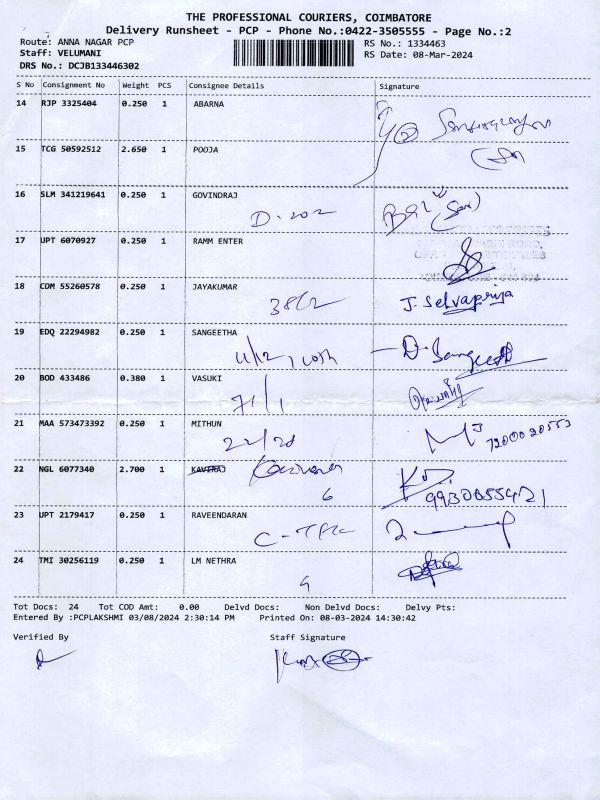 THE PROFESSIONAL COURIERS, COIMBATORE
Delivery Runsheet - PCP - Phone No.:0422-3505555 - Page No.:2
Route: ANNA NAGAR PCP RS No.: 1334463
Staff: VELUMANI RS Date: 08-Mar-2024
DRS No.: DCJB133446302
S No Consignment No Weight PCS Consignee Details Signature
14 RJP 3325404 0.250 1 ABARNA
15 TCG 50592512 2.650 1 POOJA
16 SLM 341219641 0.250 1 GOVINDRAJ
D-202
17 UPT 6070927 0.250 1 RAMM ENTER
18 CDM 55260578 0.250 1 JAYAKUMAR
J. Selvapriya
19 EDQ 22294982 0.250 1 SANGEETHA
D. Sangeetha
20 BOD 433486 0.380 1 VASUKI
71/1
21 MAA 573473392 0.250 1 MITHUN
22/28 7200020553
22 NGL 6077340 2.700 1 KAVIRAJ
6 9930655421
23 UPT 2179417 0.250 1 RAVEENDARAN
24 TMI 30256119 0.250 1 LM NETHRA
Tot Docs: 24 Tot COD Amt: 0.00 Delvd Docs: Non Delvd Docs: Delvy Pts:
Entered By :PCPLAKSHMI 03/08/2024 2:30:14 PM Printed On: 08-03-2024 14:30:42
Verified By Staff Signature